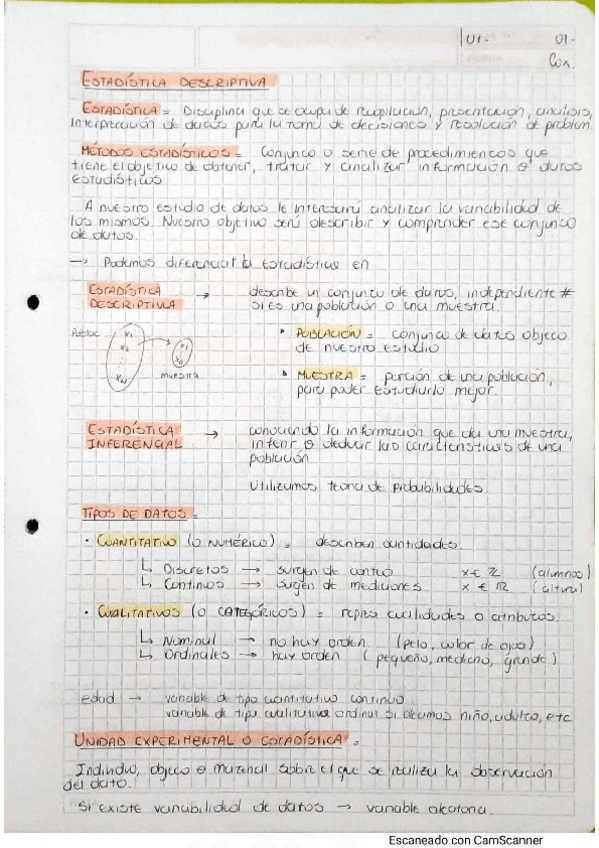 U1- 01-
ESTADÍSTICA DESCRIPTIVA
ESTADÍSTICA = Disciplina que se ocupa de recopilación, presentación, análisis,
interpretación de datos para la toma de decisiones y resolución de problem
MÉTODOS ESTADÍSTICOS = Conjunto o serie de procedimientos que
tiene el objetivo de obtener, tratar y analizar información o datos
estadísticos
A nuestro estudio de datos le interesará analizar la variabilidad de
los mismos. Nuestro objetivo será describir y comprender ese conjunto
de datos.
→ Podemos diferenciar la estadística en
ESTADÍSTICA → describe un conjunto de datos, independiente #
DESCRIPTIVA si es una población o una muestra.
Poblac
x1
x2
xN
x1
muestra
• POBLACIÓN = conjunto de datos objeto
de nuestro estudio
• MUESTRA = porción de una población,
para poder estudiarlo mejor.
ESTADÍSTICA → conociendo la información que da una muestra,
INFERENCIAL inferir o deducir las características de una
población
Utilizamos teoría de probabilidades.
TIPOS DE DATOS =
• CUANTITATIVO (O NUMÉRICO) = describen cantidades.
↳ Discretos → surgen de conteo x ∈ ℤ (alumnos)
↳ Continuos → surgen de mediciones x ∈ ℝ (altura)
• CUALITATIVOS (O CATEGÓRICOS) = repres cualidades o atributos.
↳ Nominal → no hay orden (pelo, color de ojos)
↳ Ordinales → hay orden (pequeño, mediano, grande)
edad → variable de tipo cuantitativo continuo
variable de tipo cualitativa ordinal si decimos niño, adulto, etc
UNIDAD EXPERIMENTAL O ESTADÍSTICA =
Individuo, objeto o material sobre el que se realiza la observación
del dato.
Si existe variabilidad de datos → variable aleatoria.
Escaneado con CamScanner